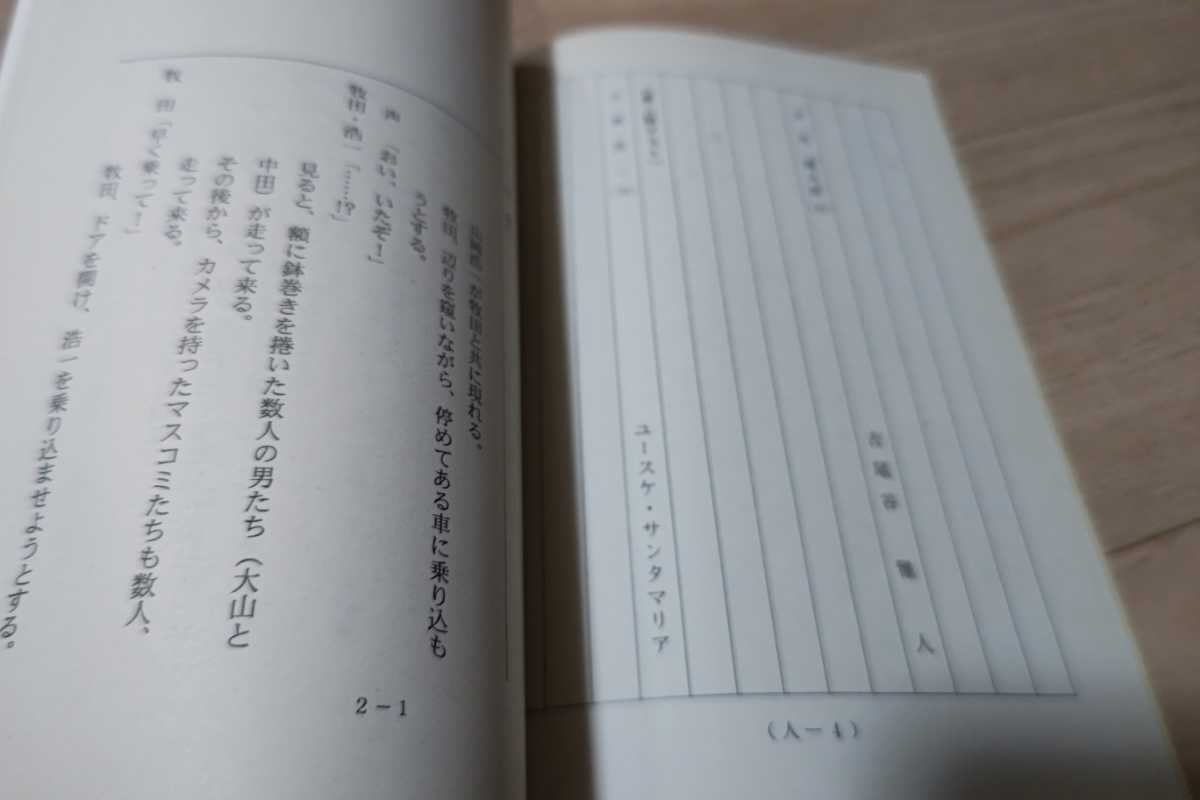 ユースケ・サンタマリア
(人ー4)
浩一が牧田と共に現れる。
牧田、辺りを窺いながら、停めてある車に乗り込も
うとする。
声「おい、いたぞ！」
牧田・浩一「……!?」
見ると、額に鉢巻きを捲いた数人の男たち（大山と
中田）が走って来る。
その後から、カメラを持ったマスコミたちも数人、
走って来る。
牧田「早く乗って！」
牧田、ドアを開け、浩一を乗り込ませようとする。
2－1